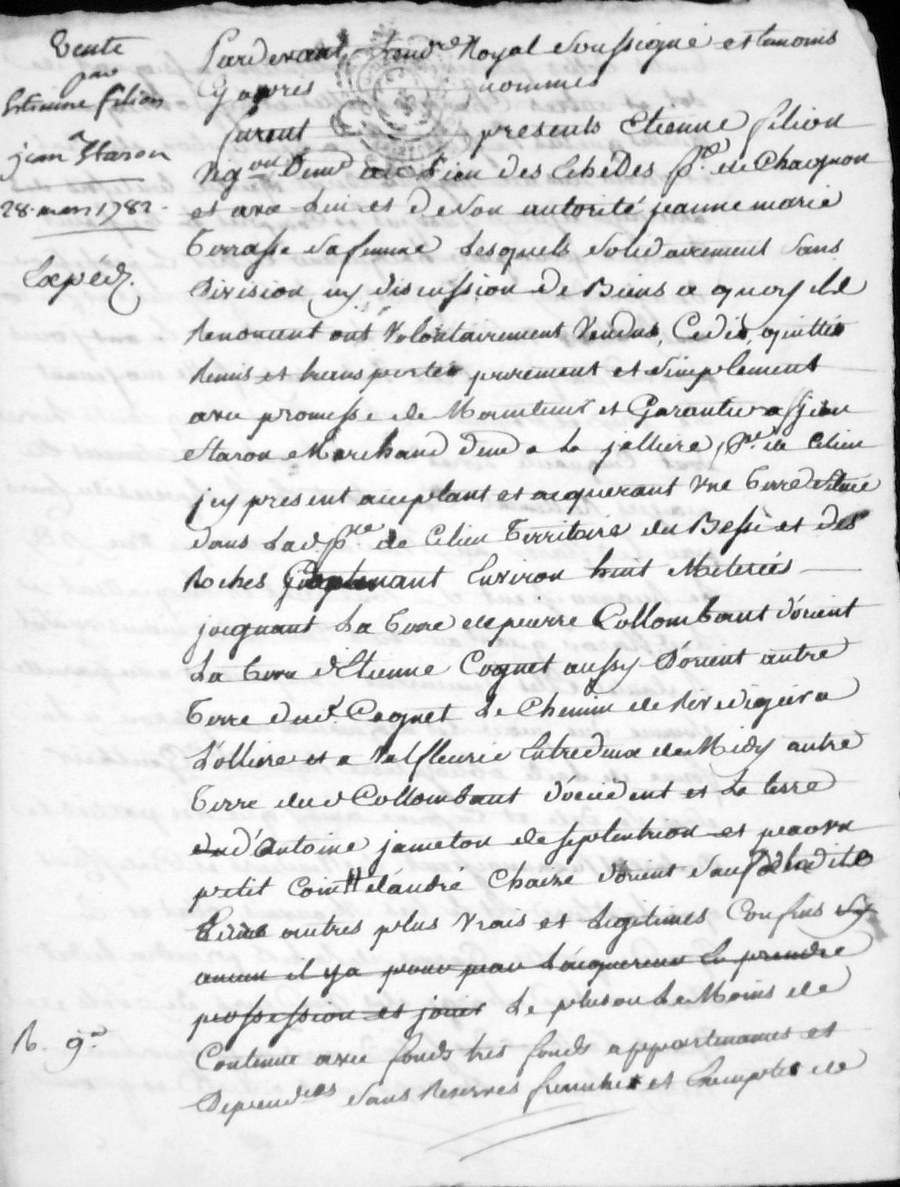 Vente
par
Estienne filion
a
jean Staron
28. mars 1782.
Expédz.
Pardevant Nore Royal Soussigné et temoins
Cy apres nommés
furent presents Etienne filion
Vigon Demt au Lieu des Echedes psse de Chagnon
et avec lui et de Son autorité jeanne marie
Terrasse Sa femme Lesquels Solidairement Sans
Division ny discussion de Biens a quoy ils
Renoncent ont Volontairement Vendus, Cedés, quittés
Remis et transportés purement et Simplement
avec promesse de Maintenir et Garantir a Sr jean
Staron Marchand demt a la jalliere, psse de Cilieu
jcy present acceptant et acquerant Une Terre Située
dans Lad. psse de Cilieu Territoire du Bessé et des
Roches Contenant Environ huit Meterées
joignant La Terre de pierre Collombant d'orient
La Terre d'Etienne Cognet aussy D'orient autre
Terre dud Cognet Le Chemin de Rivedegier a
L'olliere et a Valfleurie Entredeux de Midy autre
Terre dud Collombant d'occident et La terre
d'Antoine jameton de septentrion et encore un
petit d'andré Chaize d'orient Sauf
autres plus Vrais et Legitimes Confins
aucun il y a pour par L'acquereur En prendre
possession et jouir Le plus ou Le Moins de
Contenu avec fonds tres fonds appartenances et
Dependces Sans Reserves franche et Exempte de
R. 9.d